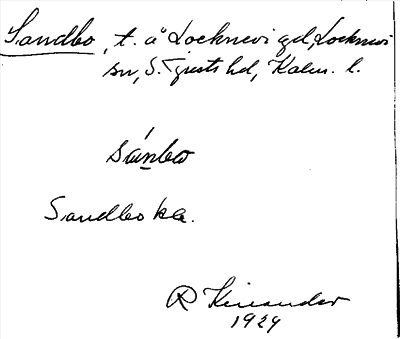 Sandbo, t. å Locknevi gd, Locknevi
sn, S. Tjusts hd, Kalm. l.
sánbω
Sandbo ka.
R Kinander
1929